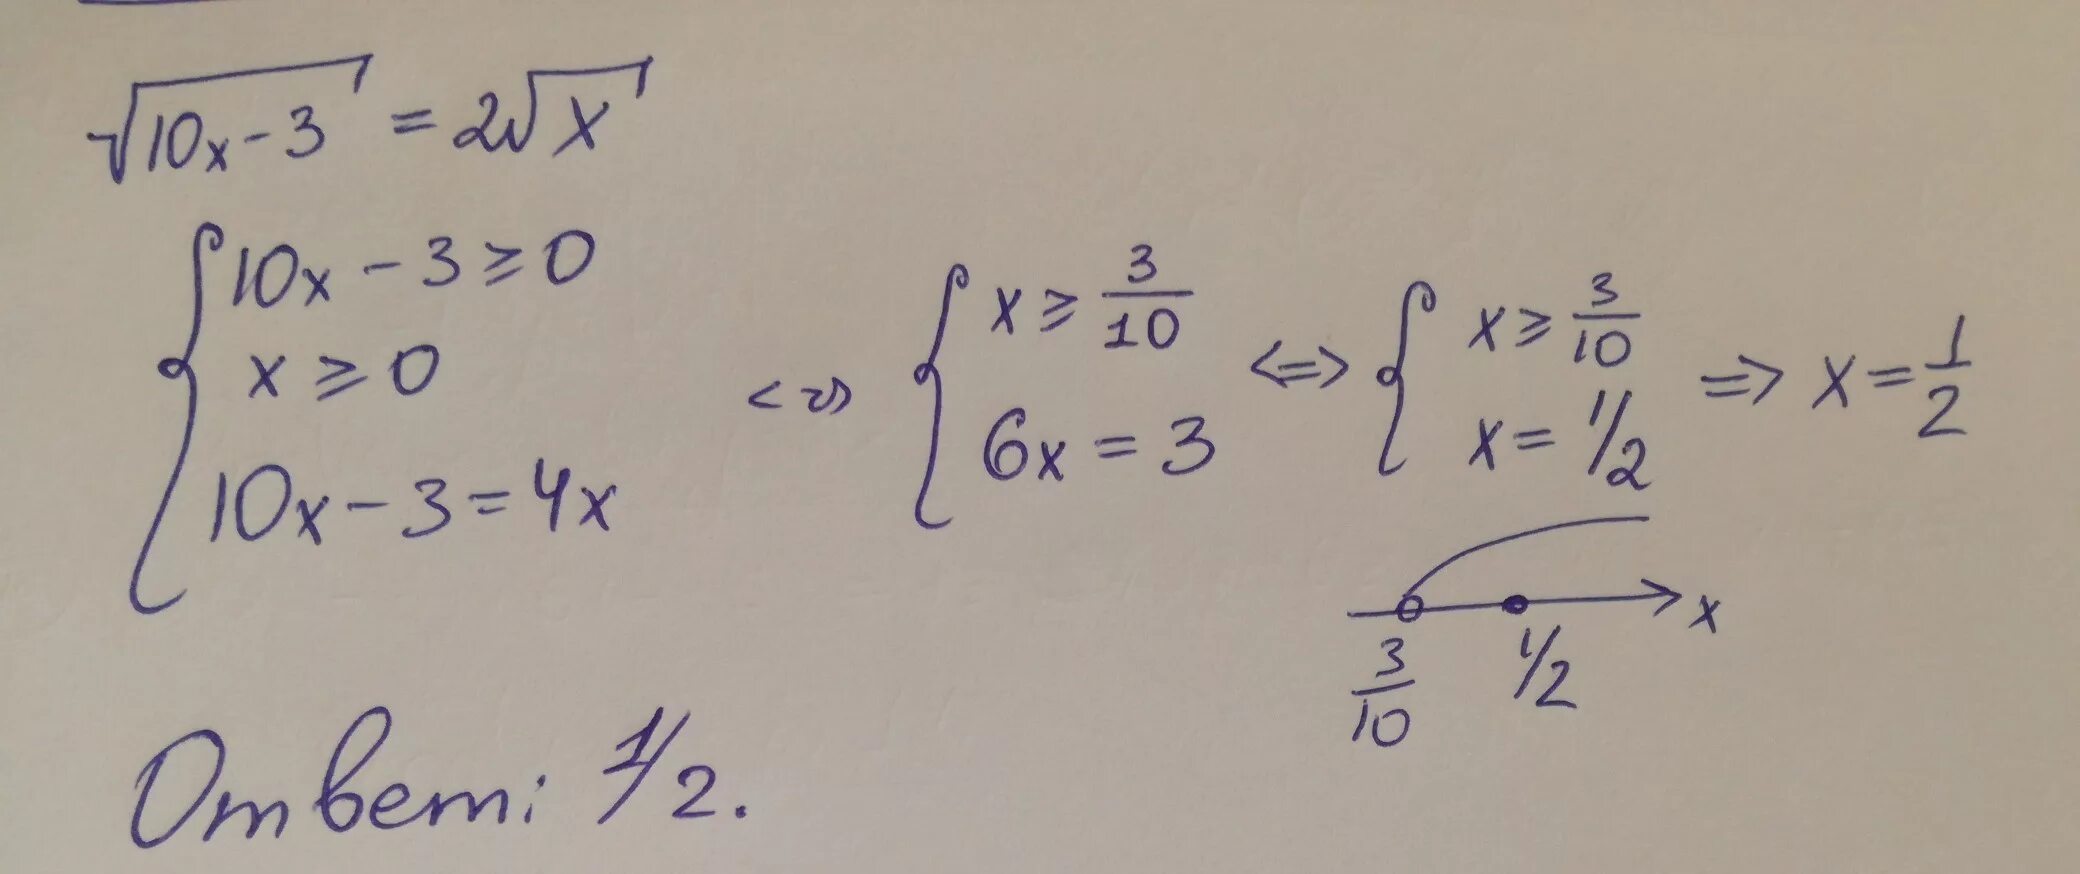 √10x-3 = 2√x
{ 10x - 3 ≥ 0
x ≥ 0
10x - 3 = 4x
<=>
{ x ≥ 3/10
6x = 3
<=>
{ x ≥ 3/10
x = 1/2
=> x = 1/2
3/10 1/2 x
Ответ: 1/2.